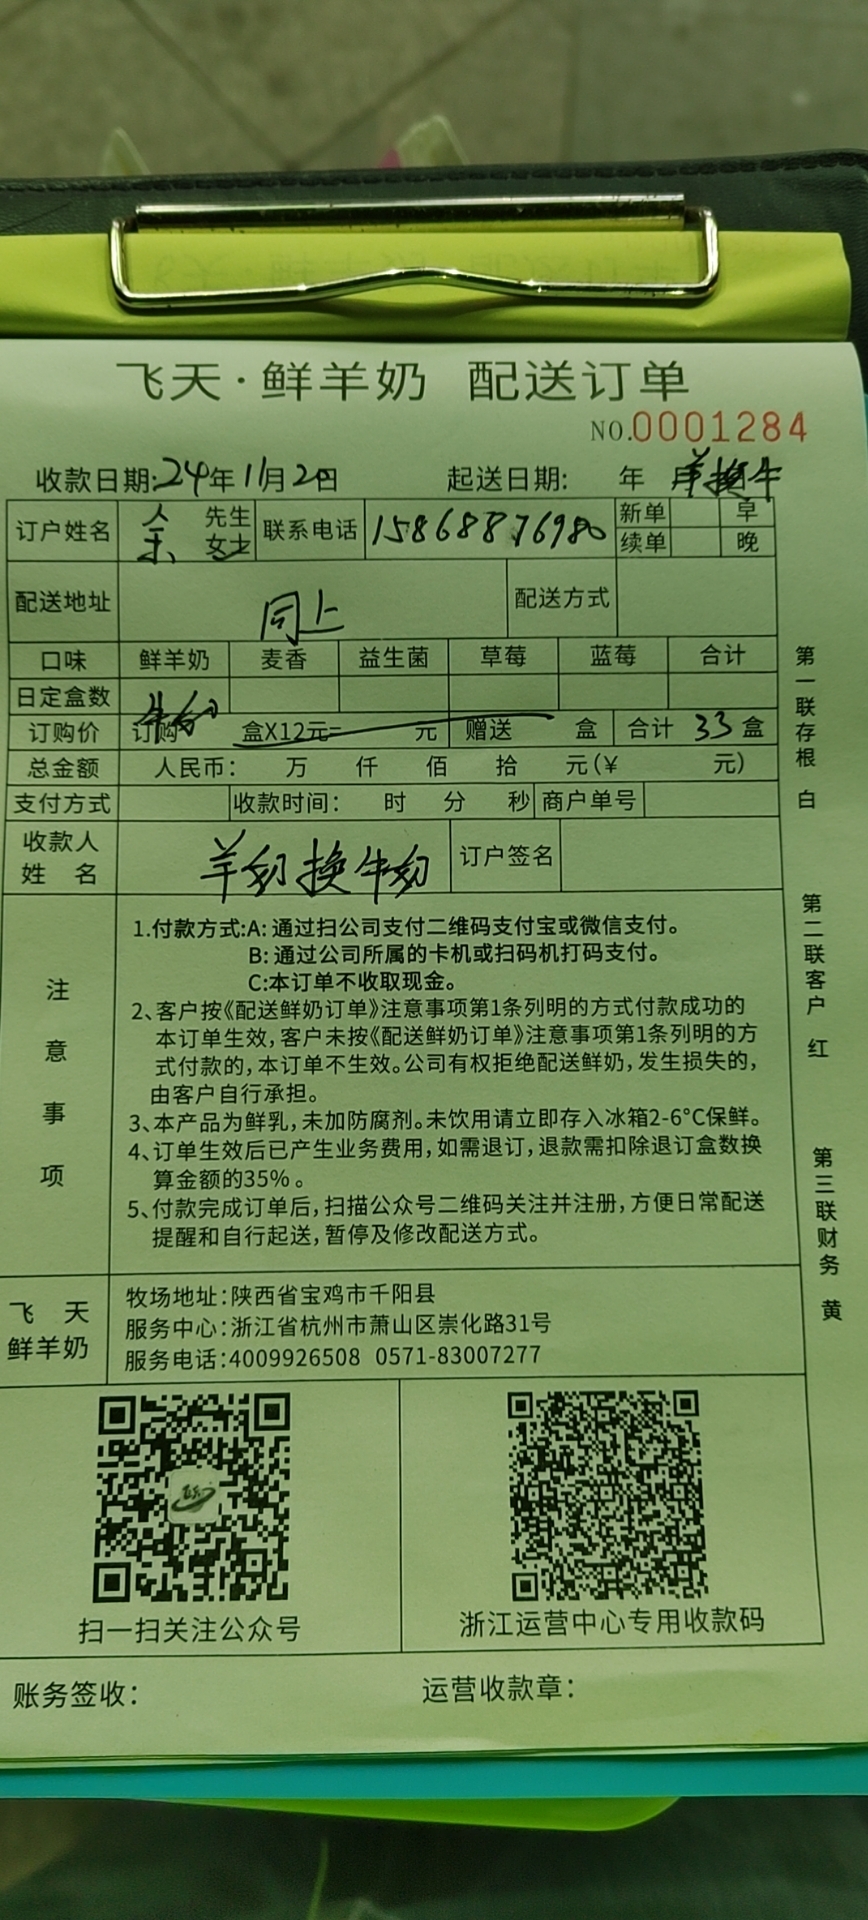 飞天·鲜羊奶 配送订单
NO.0001284
收款日期:24年11月20日 起送日期: 年 月 羊换牛
订户姓名 余 先生 女士 联系电话 15868876980 新单 早
续单 晚
配送地址 同上 配送方式
口味 鲜羊奶 麦香 益生菌 草莓 蓝莓 合计
日定盒数 牛奶
订购价 订购 盒X12元= 元 赠送 盒 合计 33 盒
总金额 人民币: 万 仟 佰 拾 元(¥ 元)
支付方式 收款时间: 时 分 秒 商户单号
收款人姓名 羊奶换牛奶 订户签名
注意事项
1.付款方式:A:通过扫公司支付二维码支付宝或微信支付。
B:通过公司所属的卡机或扫码机打码支付。
C:本订单不收取现金。
2、客户按《配送鲜奶订单》注意事项第1条列明的方式付款成功的
本订单生效,客户未按《配送鲜奶订单》注意事项第1条列明的方
式付款的,本订单不生效。公司有权拒绝配送鲜奶,发生损失的,
由客户自行承担。
3、本产品为鲜乳,未加防腐剂。未饮用请立即存入冰箱2-6°C保鲜。
4、订单生效后已产生业务费用,如需退订,退款需扣除退订盒数换
算金额的35%。
5、付款完成订单后,扫描公众号二维码关注并注册,方便日常配送
提醒和自行起送,暂停及修改配送方式。
飞天
鲜羊奶
牧场地址:陕西省宝鸡市千阳县
服务中心:浙江省杭州市萧山区崇化路31号
服务电话:4009926508 0571-83007277
扫一扫关注公众号 浙江运营中心专用收款码
账务签收: 运营收款章:
第一联存根 白
第二联客户 红
第三联财务 黄